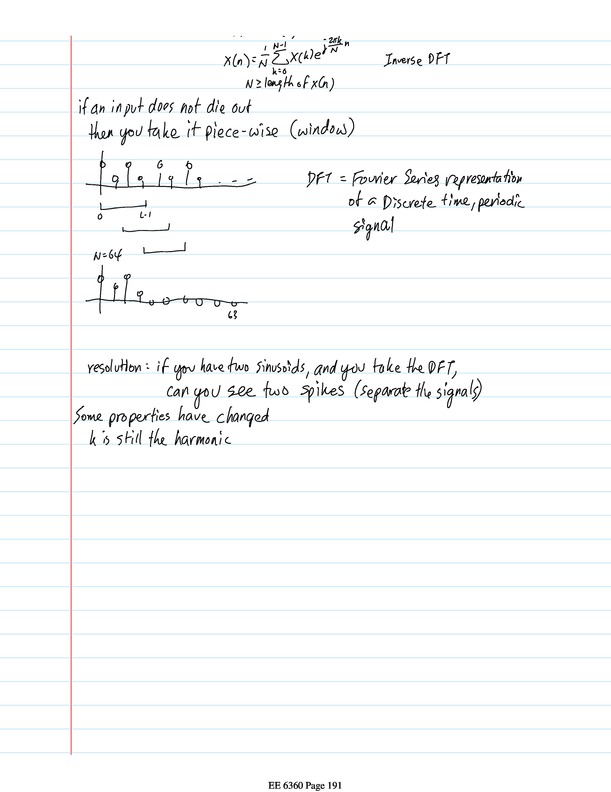 x(n) = 1/N Σ_{k=0}^{N-1} X(k) e^{j 2πk/N n}    Inverse DFT
N ≥ length of x(n)
if an input does not die out
then you take it piece-wise (window)
DFT = Fourier Series representation
of a Discrete time, periodic
signal
0    L-1
N=64
63
resolution: if you have two sinusoids, and you take the DFT,
can you see two spikes (separate the signals)
Some properties have changed
k is still the harmonic
EE 6360 Page 191